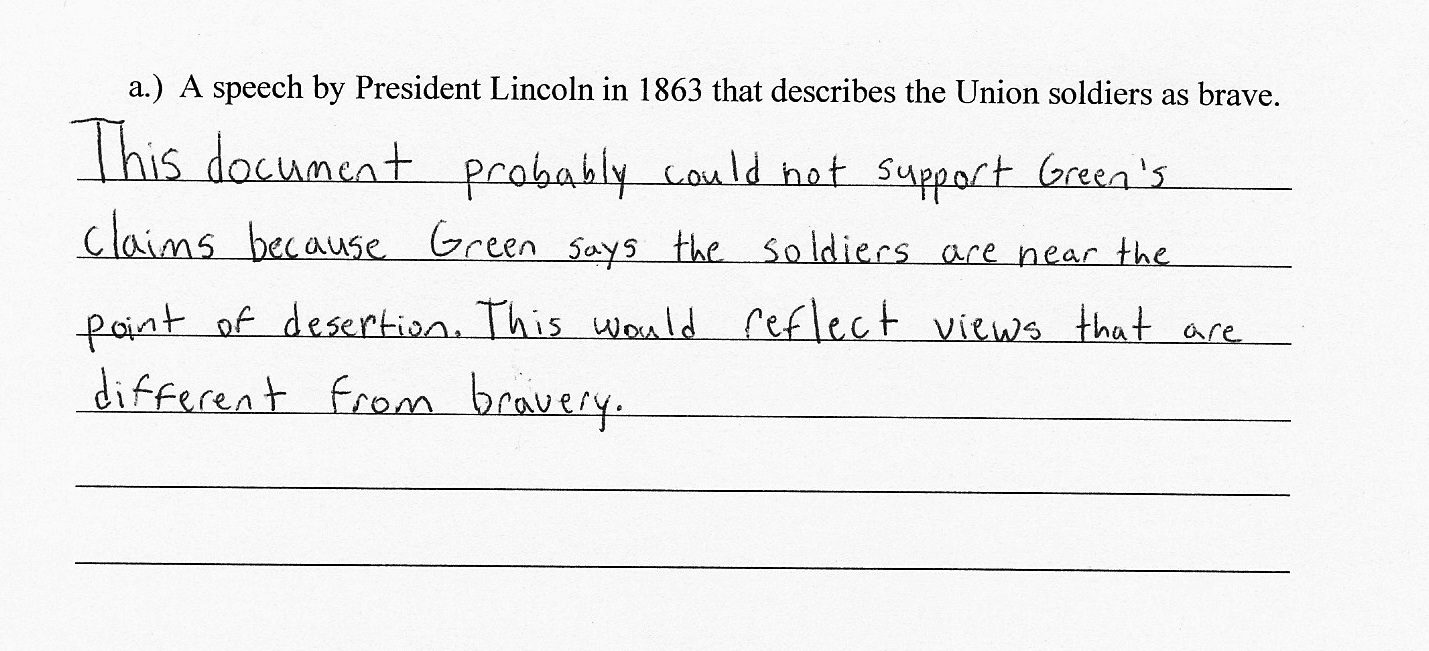 a.) A speech by President Lincoln in 1863 that describes the Union soldiers as brave.
This document probably could not support Green's
claims because Green says the soldiers are near the
point of desertion. This would reflect views that are
different from bravery.